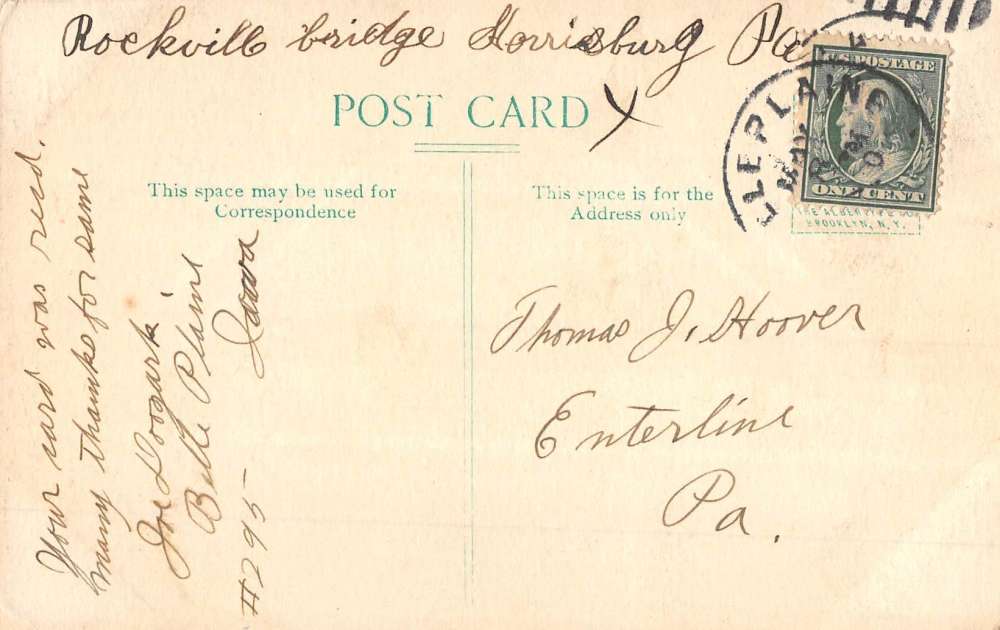 Rockvill bridge Horrisburg Pa
POST CARD
This space may be used for
Correspondence
This space is for the
Address only
U.S. POSTAGE
ONE CENT
THE ALBERTYPE CO.
BROOKLYN, N.Y.
LE PLAINE
MAY
Your card was recd.
many thanks for same
Joe
Belle Plaine
Iowa
#295
Thomas J. Hoover
Enterline
Pa.